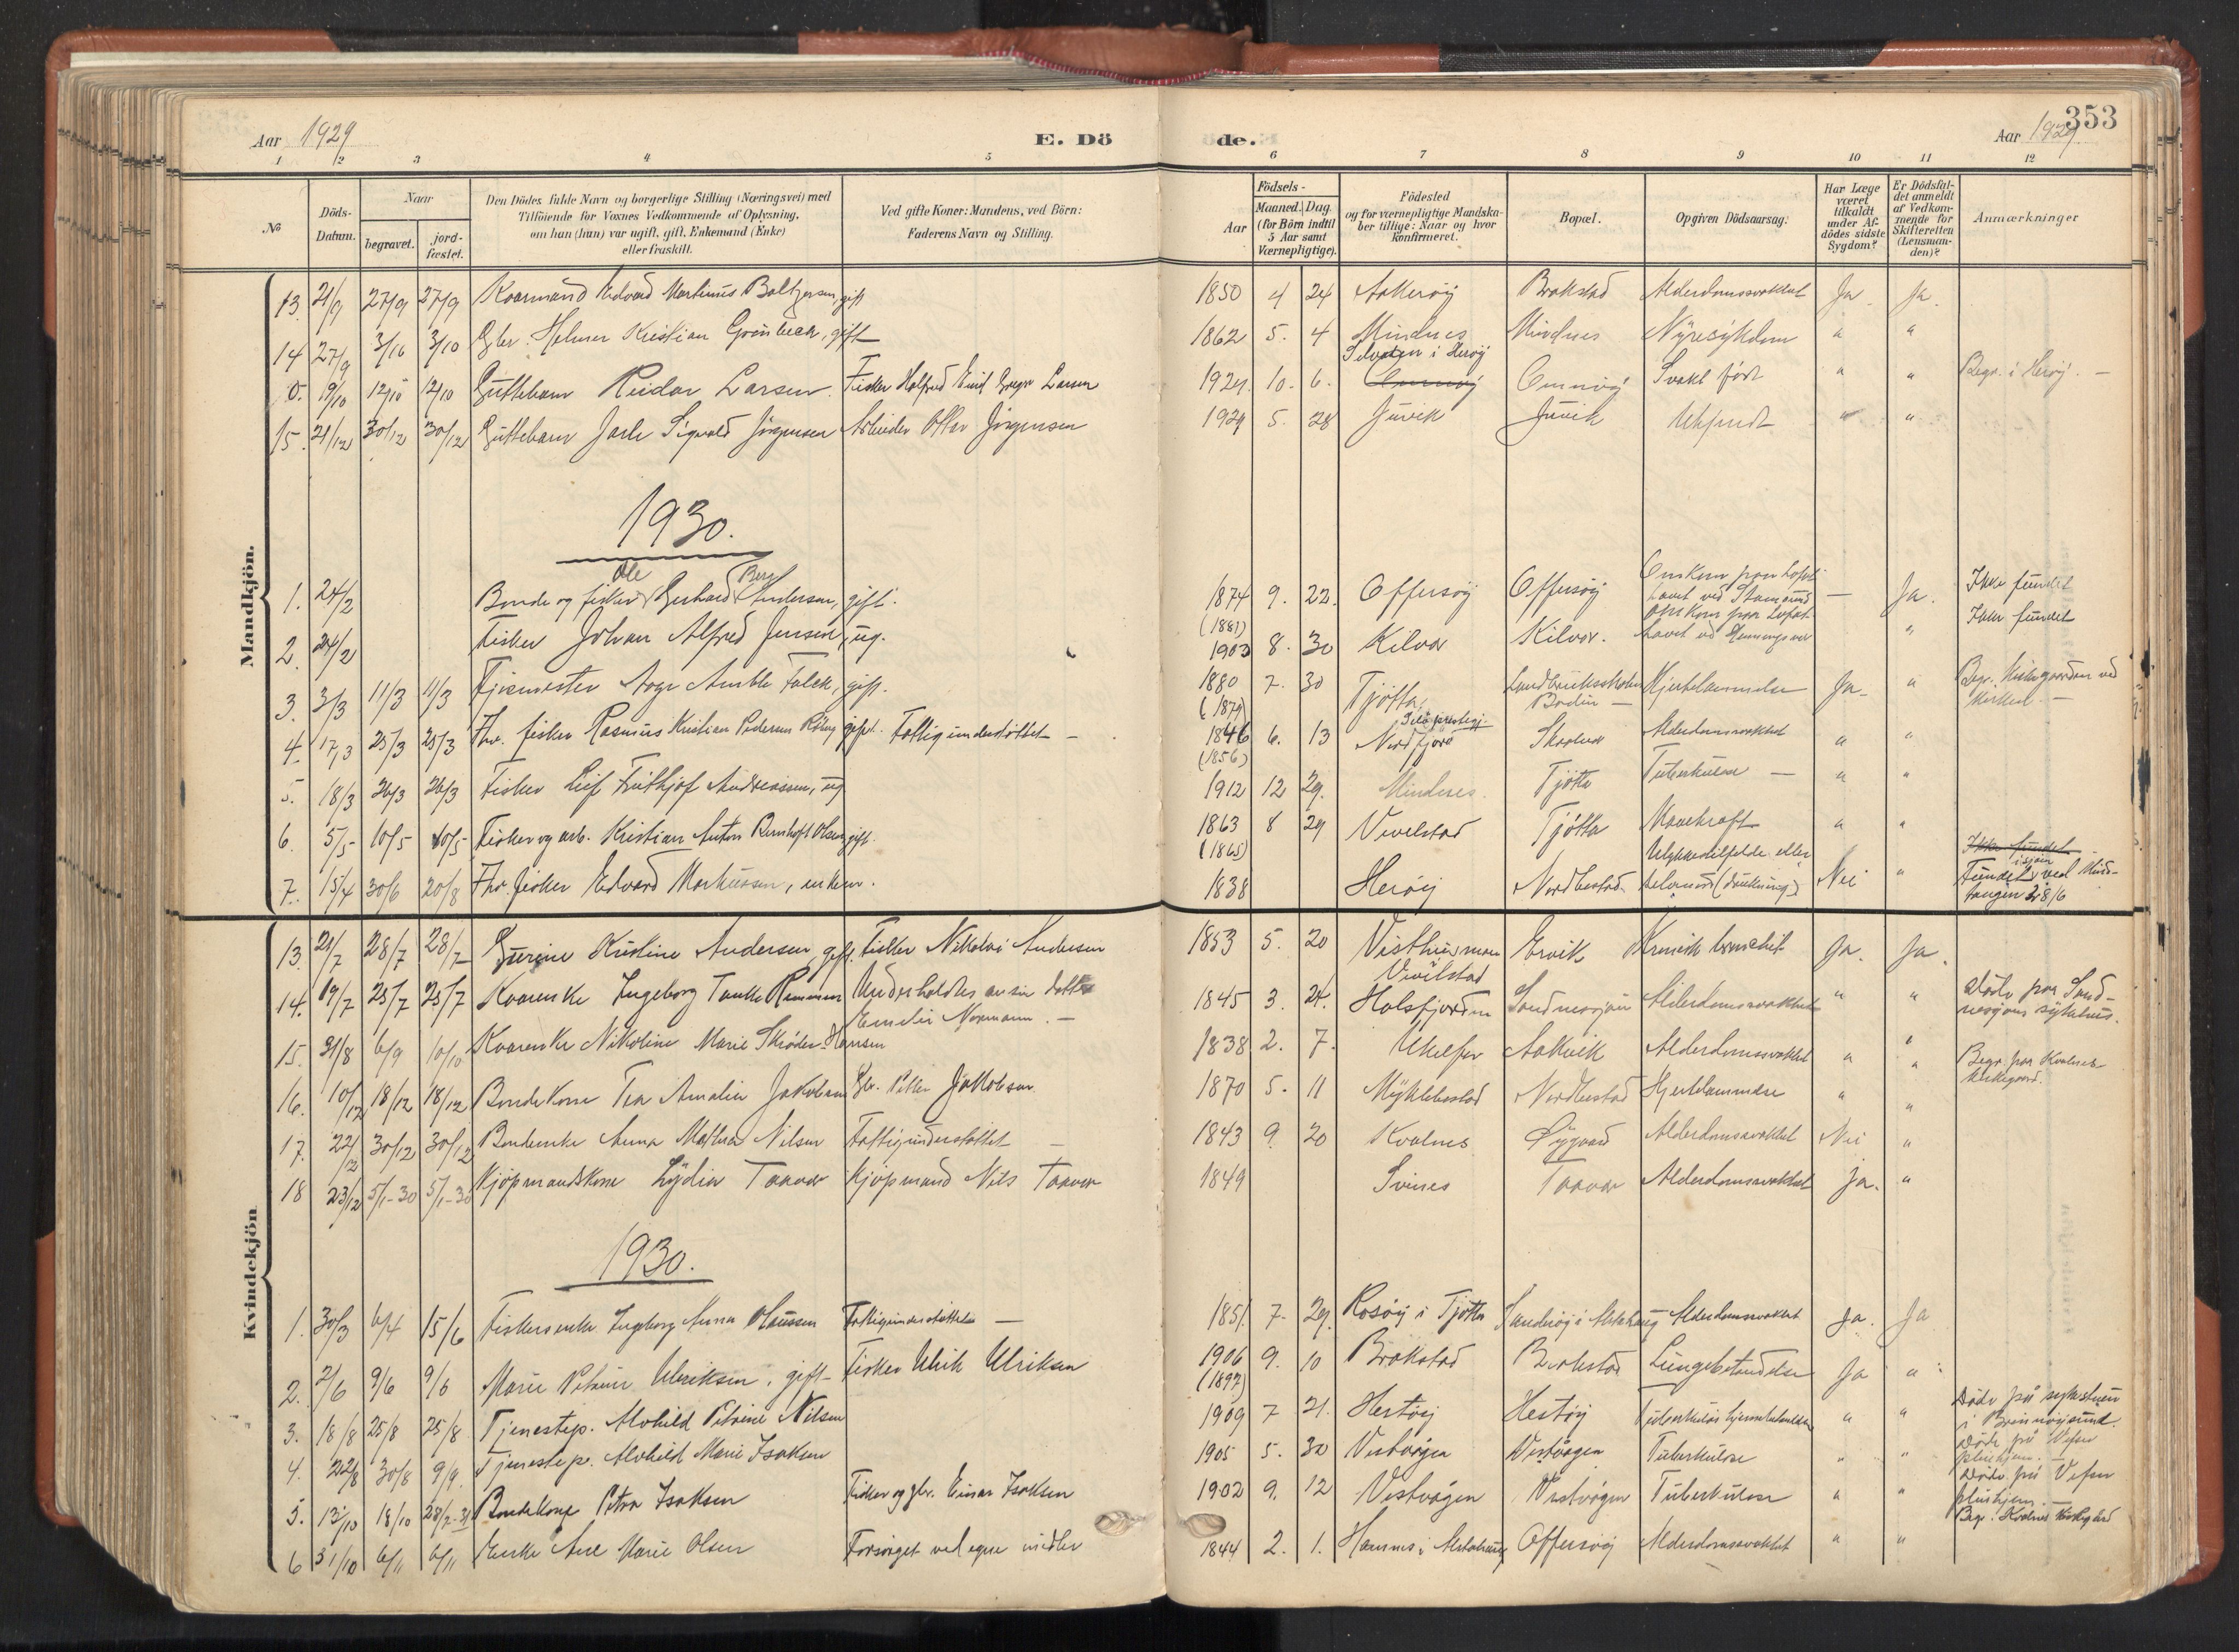 353
Aar 1929
E. Dö
de.
Aar 1929
1 2 3 4 5 6 7 8 9 10 11 12
№
Döds-
Datum.
Naar
begravet.
jord-
fæstet.
Den Dödes fulde Navn og borgerlige Stilling (Næringsvei) med
Tilföiende for Voxnes Vedkommende af Oplysning,
om han (hun) var ugift, gift, Enkemand (Enke)
eller fraskilt.
Ved gifte Koner: Mandens, ved Börn:
Faderens Navn og Stilling.
Aar
Födsels-
Maaned. Dag.
(for Börn indtil
5 Aar samt
Værnepligtige).
Födested
og for værnepligtige Mandska-
ber tillige: Naar og hvor
konfirmeret.
Bopæl.
Opgiven Dödsaarsag.
Har Læge
været
tilkaldt
under Af-
dödes sidste
Sygdom?
Er Dödsfal-
det anmeldt
af Vedkom-
mende for
Skifteretten
(Lensman-
den)?
Anmærkninger
Mandkjön.
13. 21/9 27/9 27/9 Kaarmand Edvard Martinus Baltzersen, gift 1850 4 24 Aakerøy Brakstad Alderdomssvakhet Ja. Ja.
14 27/9 3/10 3/10 Gbr. Helmer Kristian Grønbeck, gift 1862 5. 4 Mindnes Mindnes Nyresykdom " "
0. 10/10 12/10 12/10 Guttebarn Reidar Larsen. Fisker Halfred Emil Larsen 1929. 10. 6. i Herøy Omnøy Svakt født " " Begr. i Herøy. -
15. 21/12 30/12 30/12 Guttebarn Jarle Sigvald Jørgensen Arbeider Ottar Jørgensen 1929 5. 28 Juvik Juvik Ukjendt " "
1930.
1. 24/2 Bonde og fisker Ole Gerhard Berg Andersen, gift. 1874 (1881) 9. 22. Offersøy Offersøy Omkom paa Lofot-
havet ved Stamsund — Ja. Ikke fundet
2. 24/2 Fisker Johan Alfred Jensen, ug. 1903 8. 30 Kilvær Kilvær. Omkom paa Lofot-
havet ved Henningsvær " Ikke fundet
3. 3/3 11/3 11/3 Fjøsmester Aage Falck, gift. 1880 (1879) 7. 30 Tjøtta Landbruksskolen
Bodin — Hjertelammelse Ja. " Begr. Kirkegaarden ved
kirken. —
4. 17/3 25/3 25/3 Fhv. fisker Rasmus Kristian Pedersen gift. Fattigunderstøttet - 1846 (1856) 6. 13 Nordfjord Alderdomssvakhet " "
5. 18/3 26/3 26/3 Fisker Leif Frithjof Andreassen, ug 1912 12 29. Mindnes. Tjøtta Tuberkulose — " "
6. 5/5 10/5 10/5 Fisker og arb. Kristian Anton Bernhoft Olsen, gift. 1863 (1865) 8 29 Vevelstad Tjøtta Mavekræft " "
7. 15/4 30/6 20/8 Fhv. fisker Edvard Markussen, enkem. 1838 Herøy Nordbostad Ulykkestilfelde eller
selvmord (drukning) Nei " Ikke fundet
Fundet i sjøen ved Mind-
tangen 28/6
Kvindekjön
13. 21/7 28/7 28/7 Gurine Kristine Andersen, gift. Fisker Nikolai Andersen 1853 5. 20 Visthus
Vevelstad Ervik Kronisk bronchit Ja. Ja.
14. 19/7 25/7 25/7 Kaarenke Ingeborg Tanke Underholdes av sin datter
Emelie Normann. — 1845 3. 24. Halsfjorden Sandnessjøen Alderdomssvakhet " " Døde paa Sand-
nessjøens sykehus.
15. 31/8 6/9 10/10 Kaarenke Nikoline Marie Skrøder Hansen 1838 2. 7. Aakvik Alderdomssvakhet " " Begr. paa Kvalnes
kirkegaard.
16. 10/12 18/12 18/12 Bondekone Tea Amalia Jakobsen Gbr. Petter Jakobsen 1870 5. 11 Myklebostad Nordbostad Hjertelammelse " "
17. 22/12 30/12 30/12 Bondeenke Anna Nilsen Fattigunderstøttet — 1843 9. 20 Kvalnes Øygard Alderdomssvakhet Nei "
18 23/12 5/1-30 5/1-30 Kjøpmandskone Lydia Taavær Kjøpmand Nils Taavær 1849 Svines Taavær Alderdomssvakhet Ja. "
1930.
1. 30/3 6/4 15/6 Fiskersenke Ingeborg Anna Olaussen Fattigunderstøttet — 1851. 7. 29. Rosøy i Tjøtta Sandnes i Alstahaug Alderdomssvakhet Ja. Ja
2. 2/6 9/6 9/6 Marie Petrine Ulriksen, gift - Fisker Ulrik Ulriksen 1906 (1897) 9. 10 Brakstad Brakstad Lungebetændelse Ja "
3. 18/8 25/8 25/8 Tjenestep. Alvhild Petrine Nilsen 1909 7 21. Hestøy Hestøy Tuberkuløs " " Døde på sykestuen
i Brønnøysund.
4. 22/8 30/8 9/9. Tjenestep. Alvhild Marie Isaksen 1905 5. 30 Vestvågen Vestvågen Tuberkulose " " Døde på Vefsn
pleiehjem. —
5. 13/10 18/10 28/2-31 Bondekone Petra Isaksen Fisker og gbr. Einar Isaksen 1902 9. 12 Vestvågen Vestvågen Tuberkulose " " Døde på Vefsn
pleiehjem. —
Begr. Kvalnes kirkegård
6 31/10 6/11 6/11 Enke Ane Marie Olsen Forsørget ved egne midler 1844 2. 1. Hamnes i Alstahaug Offersøy Alderdomssvakhet " "